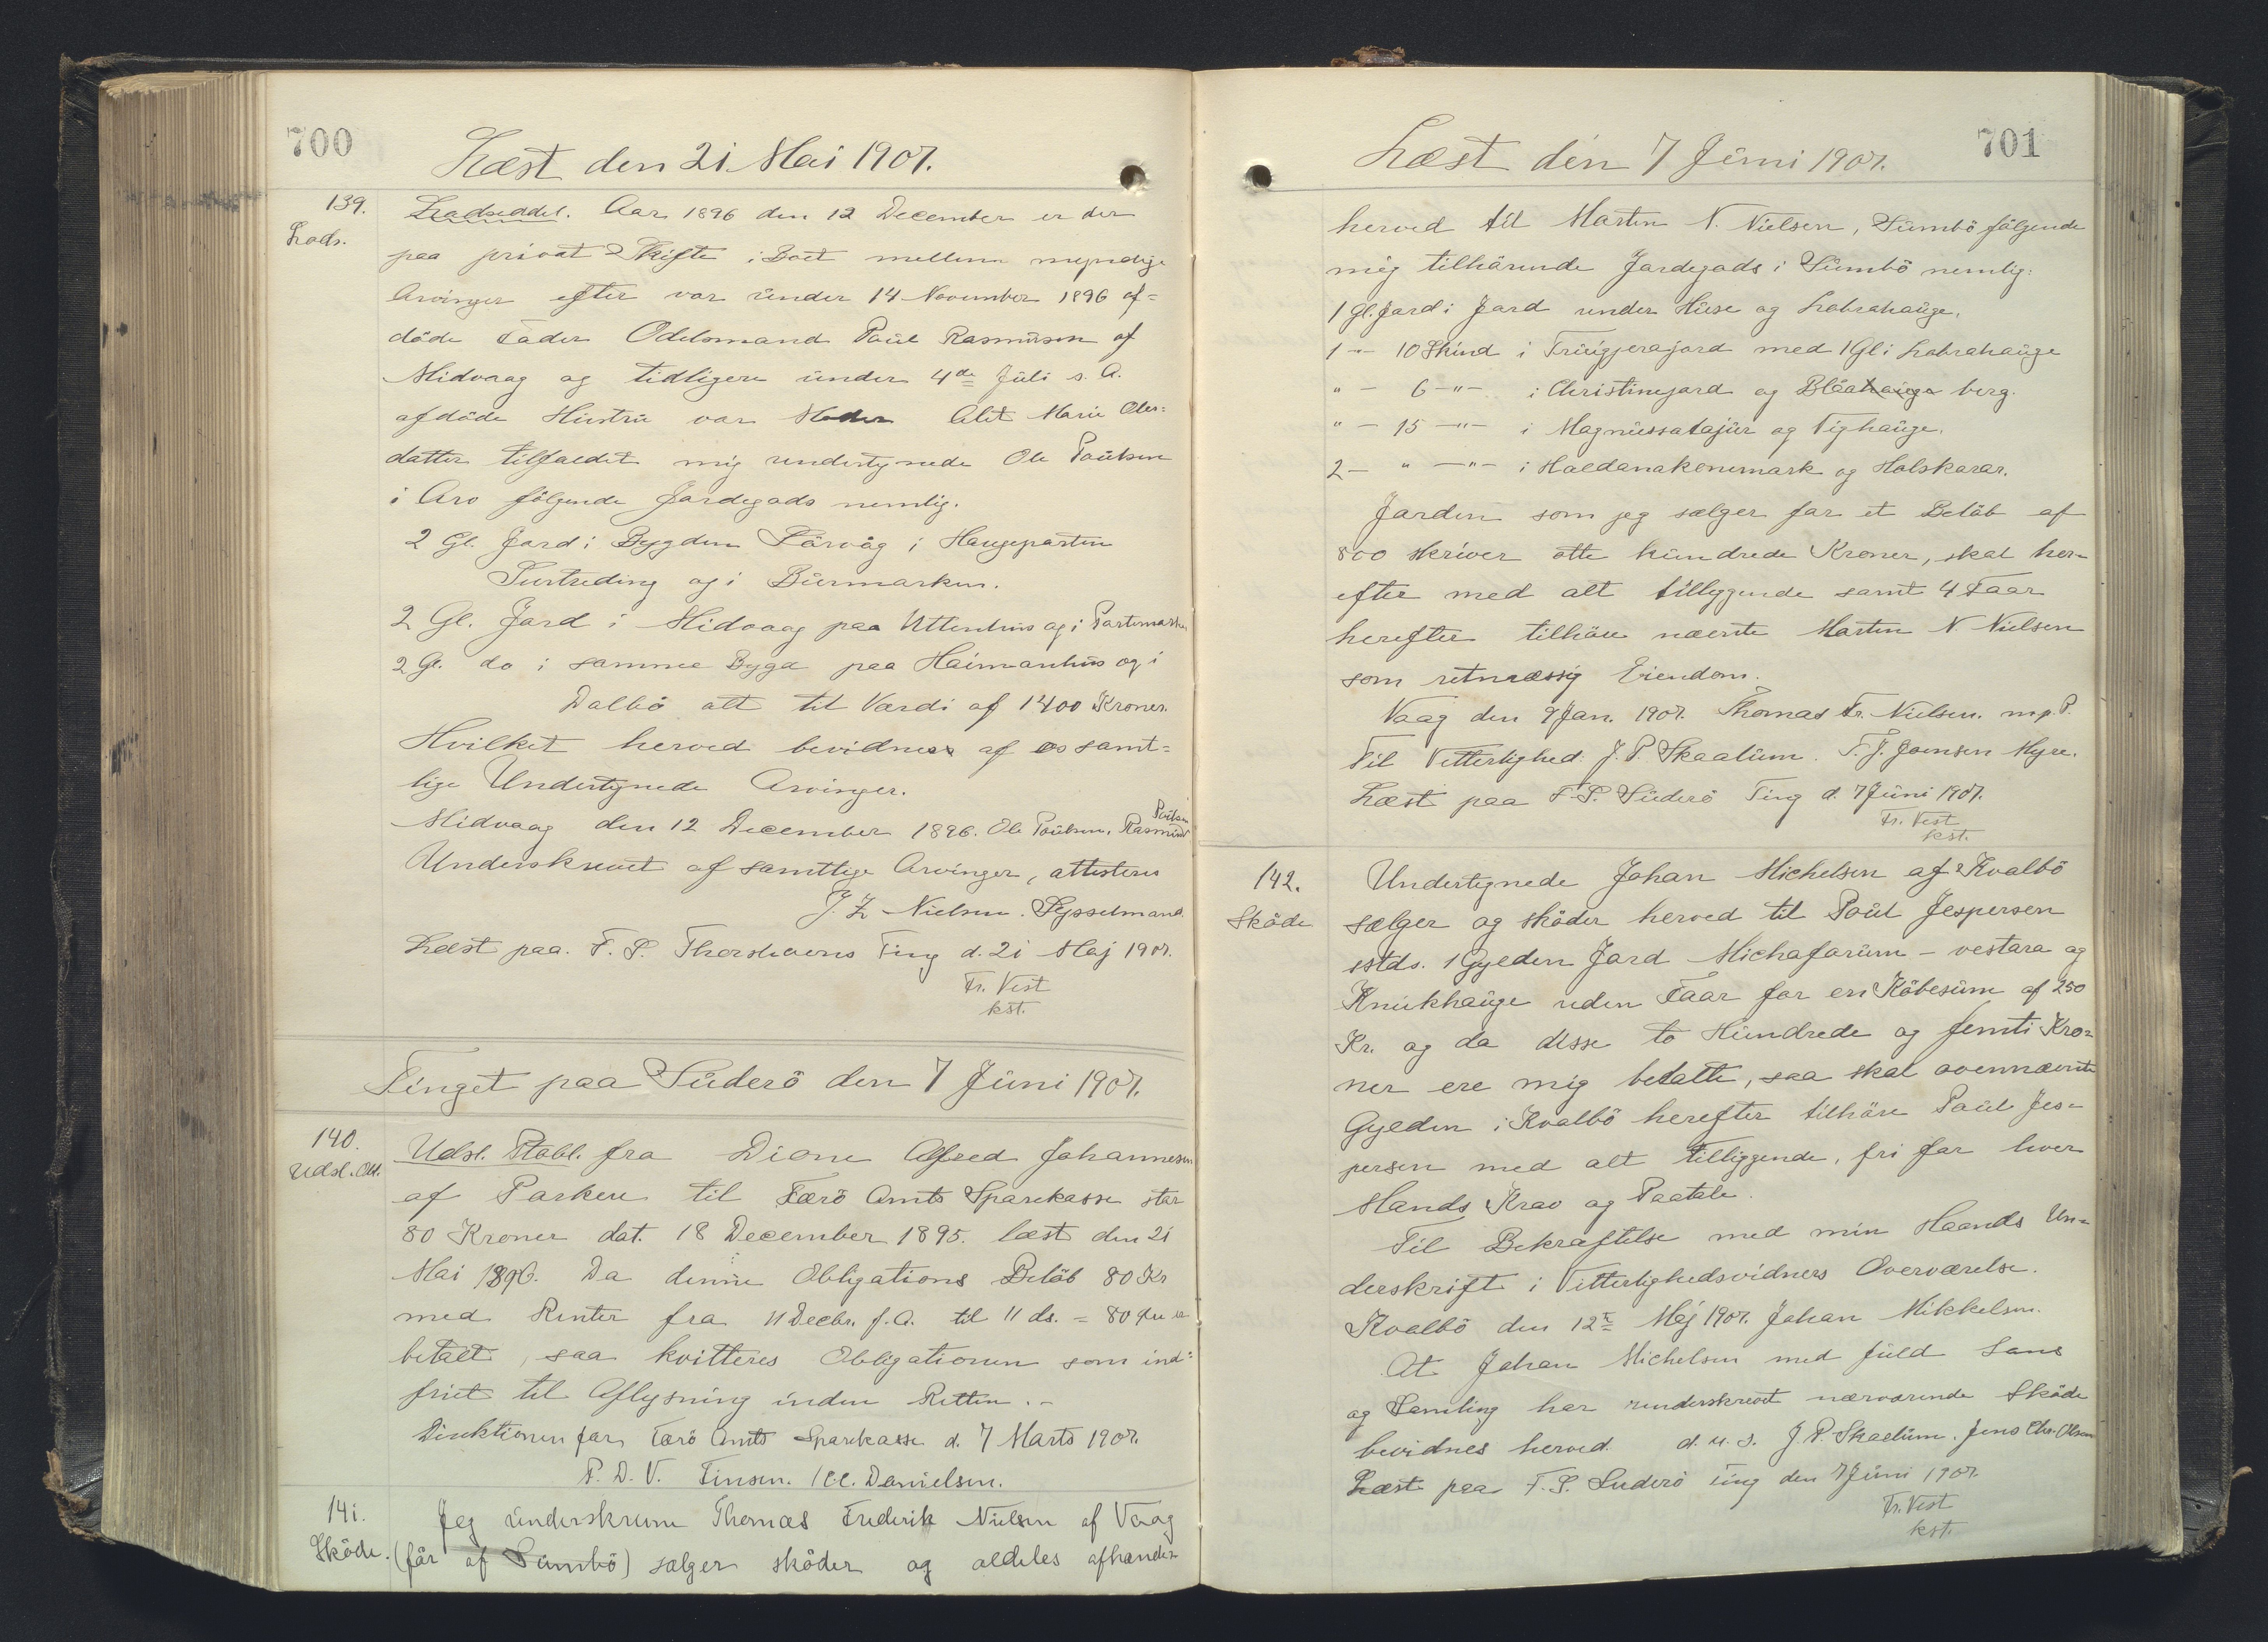 700
Læst den 21. Mai 1907.
139.
Lods.
Lodseddel. Aar 1896 den 12 December er der
paa privat Skifte i Boet mellem myndige
Arvinger efter vor under 14 November 1896 af=
döde Fader Odelsmand Paul Rasmussen af
Midvaag og tidligere under 4de Juli s. A.
afdöde Hustru vor Moder Alet Marie Oles=
datter tilfaldet mig undertegnede Ole Paulsen
i Arv fölgende Jordegods nemlig.
2 Gl. Jord i Bygden Sörvåg i Haugeparten
Turtreding og i Burmarken.
2 Gl. Jord i Midvaag paa Uttenhus og i Partsmarken
2 Gl. do i samme Bygd paa Haimanhus og i
Dalbö alt til Værdi af 1400 Kroner.
Hvilket herved bevidnes af os samt=
lige Undertegnede Arvinger.
Midvaag den 12 December 1896. Ole Paulsen, Rasmus Paulsen
Underskrevet af samtlige Arvinger, attesteres
J. Z Nielsen. Sysselmand.
Læst paa F. S. Thorshavns Ting d. 21 Maj 1907.
Fr. Vest
kst.
Tinget paa Suderö den 7 Juni 1907.
140.
Udsl. Obl.
Udsl. Ptobl. fra Dione Alfred Johannesen
af Porkere til Færö Amts Sparekasse stor
80 Kroner dat. 18 December 1895. læst den 21
Mai 1896. Da denne Obligations Belöb 80 Kr
med Renter fra 11 Decbr. f. A. til 11 ds. = 80 Øre er
betalt, saa kvitteres Obligationen som ind=
friet til Aflysning inden Retten. -
Direktionen for Færö Amts Sparekasse d. 7 Marts 1907.
P. D. V. Finsen. C.C. Danielsen.
141.
Sköde.
Jeg underskrevne Thomas Frederik Nielsen af Vaag
(för af Sumbö) sælger sköder og aldeles afhænder
701
Læst den 7 Juni 1907.
herved til Morten N. Nielsen, Sumbö fölgende
mig tilhörende Jordegods i Sumbö nemlig:
1 Gl. Jord i Jord under Huse og Labrahauge.
1 - 10 Skind i Truigjerajord med 1 Gl i Labrahauge
" - 6 - " - i Christinejord og Blåahauge berg.
" - 15 - " - i Magnussatajur og Tighauge.
2 - " - " - i Haldanakonumark og Halskarar.
Jorden som jeg sælger for et Belöb af
800 skriver otte hundrede Kroner, skal her=
efter med alt tilliggende samt 4 Faar
herefter tilhöre nævnte Morten N Nielsen
som retmæssig Eiendom.
Vaag den 9 Jan. 1907. Thomas Fr. Nielsen. m. p. P.
Til Vitterlighed: J. P. Skaalum. T. J. Joensen Myre.
Læst paa F. S. Suderö Ting d. 7 Juni 1907.
Fr. Vest
kst.
142.
Sköde
Undertegnede Johan Michelsen af Kvalbö
sælger og sköder herved til Poul Jespersen
sstds. 1 Gylden Jord Michafarum - vestara og
Knukhauge uden Faar for en Köbesum af 250
Kr. og da disse to Hundrede og femti Kro=
ner ere mig betalte, saa skal ovennævnte
Gylden i Kvalbö herefter tilhöre Poul Jes=
persen med alt tilliggende, fri for hver
Mands Krav og Paatale.
Til Bekræftelse med min Haands Un=
derskrift i Vitterlighedsvidners Overværelse.
Kvalbö den 12te Maj 1907. Johan Mikkelsen.
At Johan Michelsen med fuld Sans
og Samling har underskrevet nærværende Sköde
bevidnes herved. d. u. s. J. P. Skaalum. Jens Chr. Olsen
Læst paa F. S. Suderö Ting den 7 Juni 1907.
Fr. Vest
kst.